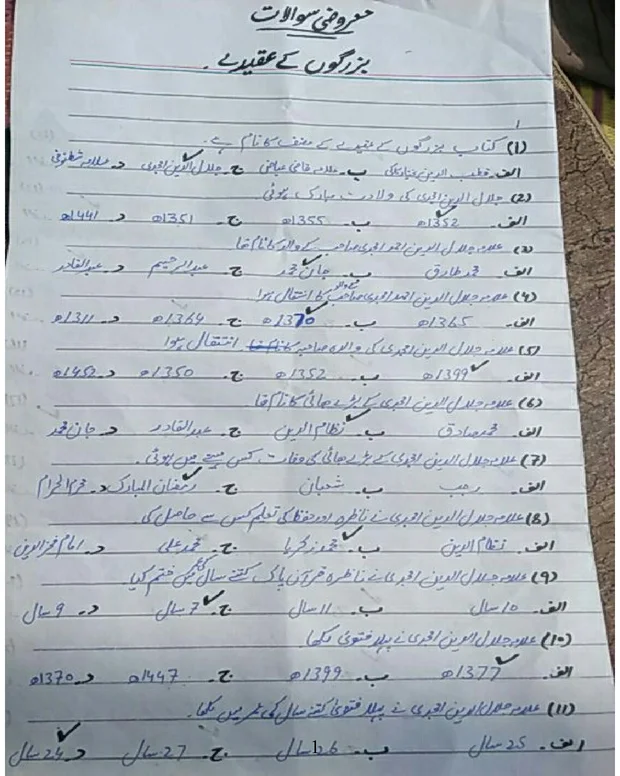 معروضی سوالات
بزرگوں کے عقیدے۔
(1) کتاب بزرگوں کے عقیدے کے مصنف کا نام ہے۔
الف۔ قطب الدین بختیار کاکی ب۔ علامہ قاضی عیاض ج۔ جلال الدین امجدی د۔ علامہ شطنوفی
(2) جلال الدین امجدی کی ولادت مبارک ہوئی
الف۔ 1352ھ ب۔ 1355ھ ج۔ 1351ھ د۔ 1441ھ
(3) علامہ جلال الدین احمد امجدی صاحب کے والد کا نام تھا
الف۔ محمد طارق ب۔ جان محمد ج۔ عبدالرحیم د۔ عبدالقادر
(4) علامہ جلال الدین احمد امجدی صاحب کے والد کا انتقال ہوا
الف۔ 1365ھ ب۔ 1370ھ ج۔ 1364ھ د۔ 1311ھ
(5) علامہ جلال الدین امجدی کی والدہ صاحبہ کا انتقال ہوا
الف۔ 1399ھ ب۔ 1352ھ ج۔ 1350ھ د۔ 1452ھ
(6) علامہ جلال الدین امجدی کے بڑے بھائی کا نام تھا
الف۔ محمد صادق ب۔ نظام الدین ج۔ عبدالقادر د۔ جان محمد
(7) علامہ جلال الدین امجدی کے بڑے بھائی کی وفات کس مہینے میں ہوئی۔
الف۔ رجب ب۔ شعبان ج۔ رمضان المبارک د۔ محرم الحرام
(8) علامہ جلال الدین امجدی نے ناظرہ اور حفظ کی تعلیم کس سے حاصل کی۔
الف۔ نظام الدین ب۔ محمد زکریا ج۔ محمد علی د۔ امام فخر الدین
(9) علامہ جلال الدین امجدی نے ناظرہ قرآن پاک کتنے سال کی میں ختم کیا۔
الف۔ 10 سال ب۔ 11 سال ج۔ 7 سال د۔ 9 سال
(10) علامہ جلال الدین امجدی نے پہلا فتویٰ لکھا۔
الف۔ 1377ھ ب۔ 1399ھ ج۔ 1447ھ د۔ 1370ھ
(11) علامہ جلال الدین امجدی نے پہلا فتویٰ کتنے سال کی عمر میں لکھا۔
الف۔ 25 سال ب۔ 26 سال ج۔ 27 سال د۔ 24 سال
1